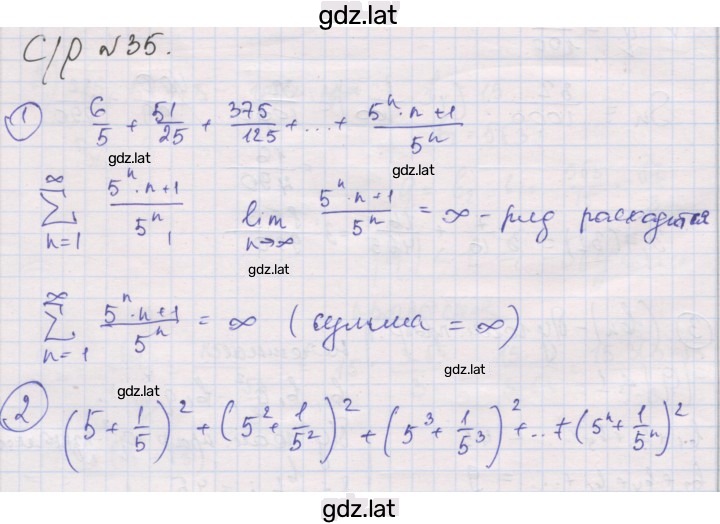 gdz.lat
С/р №35.
① 6/5 + 51/25 + 375/125 + ... + (5^n · n + 1)/5^n
gdz.lat
gdz.lat
∑_{n=1}^{∞} (5^n · n + 1)/5^n lim_{n→∞} (5^n · n + 1)/5^n = ∞ - ряд расходится
gdz.lat
∑_{n=1}^{∞} (5^n · n + 1)/5^n = ∞ (сумма = ∞)
gdz.lat
gdz.lat
② (5 + 1/5)^2 + (5^2 + 1/5^2)^2 + (5^3 + 1/5^3)^2 + ... + (5^n + 1/5^n)^2
gdz.lat